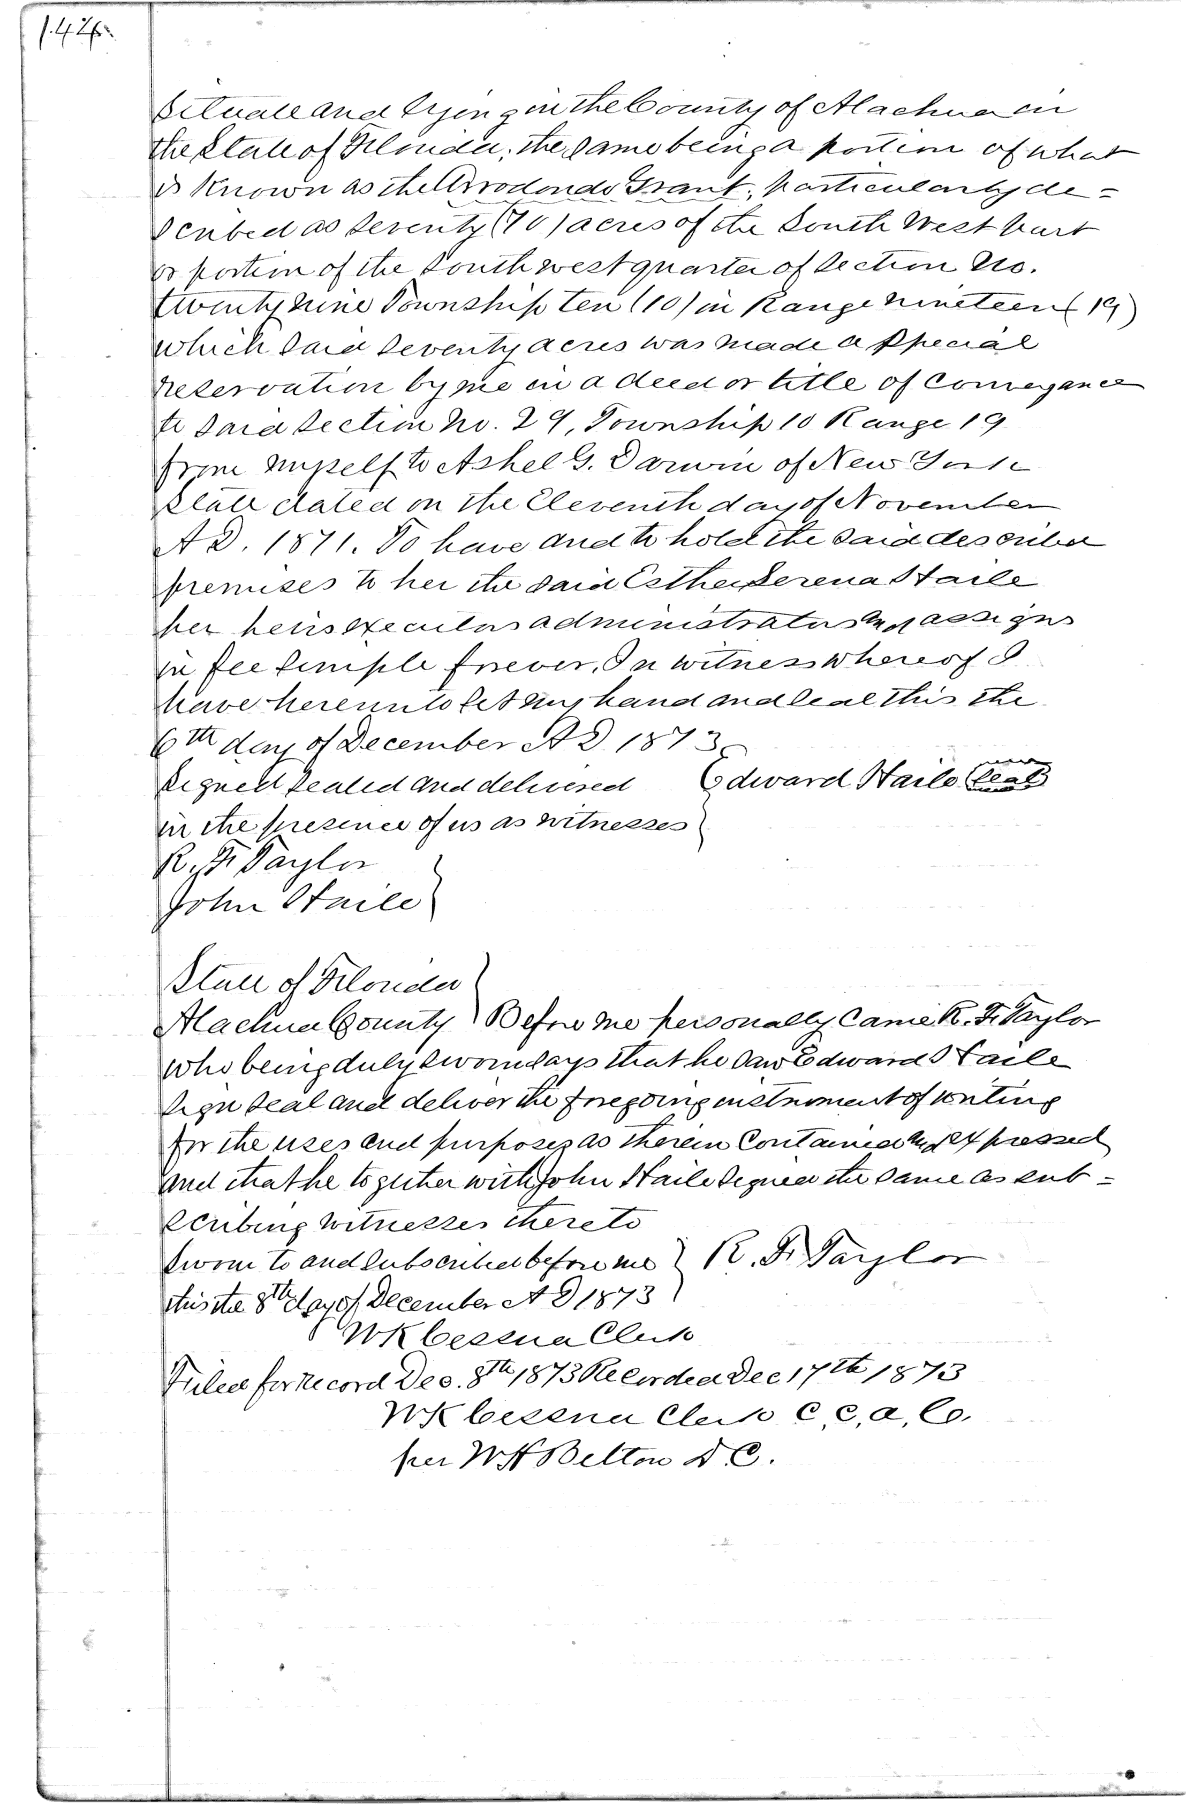 142
Situate and lying in the County of Alachua in
the State of Florida, the same being a portion of what
is known as the Arrodondo Grant, particularly de=
scribed as Seventy (70) acres of the South West part
or portion of the South west quarter of Section No.
twenty nine Township ten (10) in Range nineteen (19)
which said seventy acres was made a Special
reservation by me in a deed or title of conveyance
to said Section No. 29, Township 10 Range 19
from myself to Ashel G. Darwin of New York
State dated on the Eleventh day of November
A D. 1871. To have and to hold the said described
premises to her the said Esther Serena Haile
her heirs executors administrators and assigns
in fee simple forever. In witness whereof I
have hereunto set my hand and seal this the
6th day of December A D 1873
Signed sealed and delivered Edward Haile Seal
in the presence of us as witnesses
R. F. Taylor
John Haile
State of Florida
Alachua County Before me personally came R. F. Taylor
who being duly sworn says that he saw Edward Haile
sign seal and deliver the foregoing instrument of writing
for the uses and purposes as therein contained and expressed
and that he together with John Haile signed the same as sub=
scribing witnesses thereto
Sworn to and subscribed before me R. F. Taylor
this the 8th day of December A D 1873
W K Cessna Clerk
Filed for record Dec. 8th 1873 Recorded Dec 17th 1873
W K Cessna Clerk C. C. A. Co.
per W H Belton D. C.